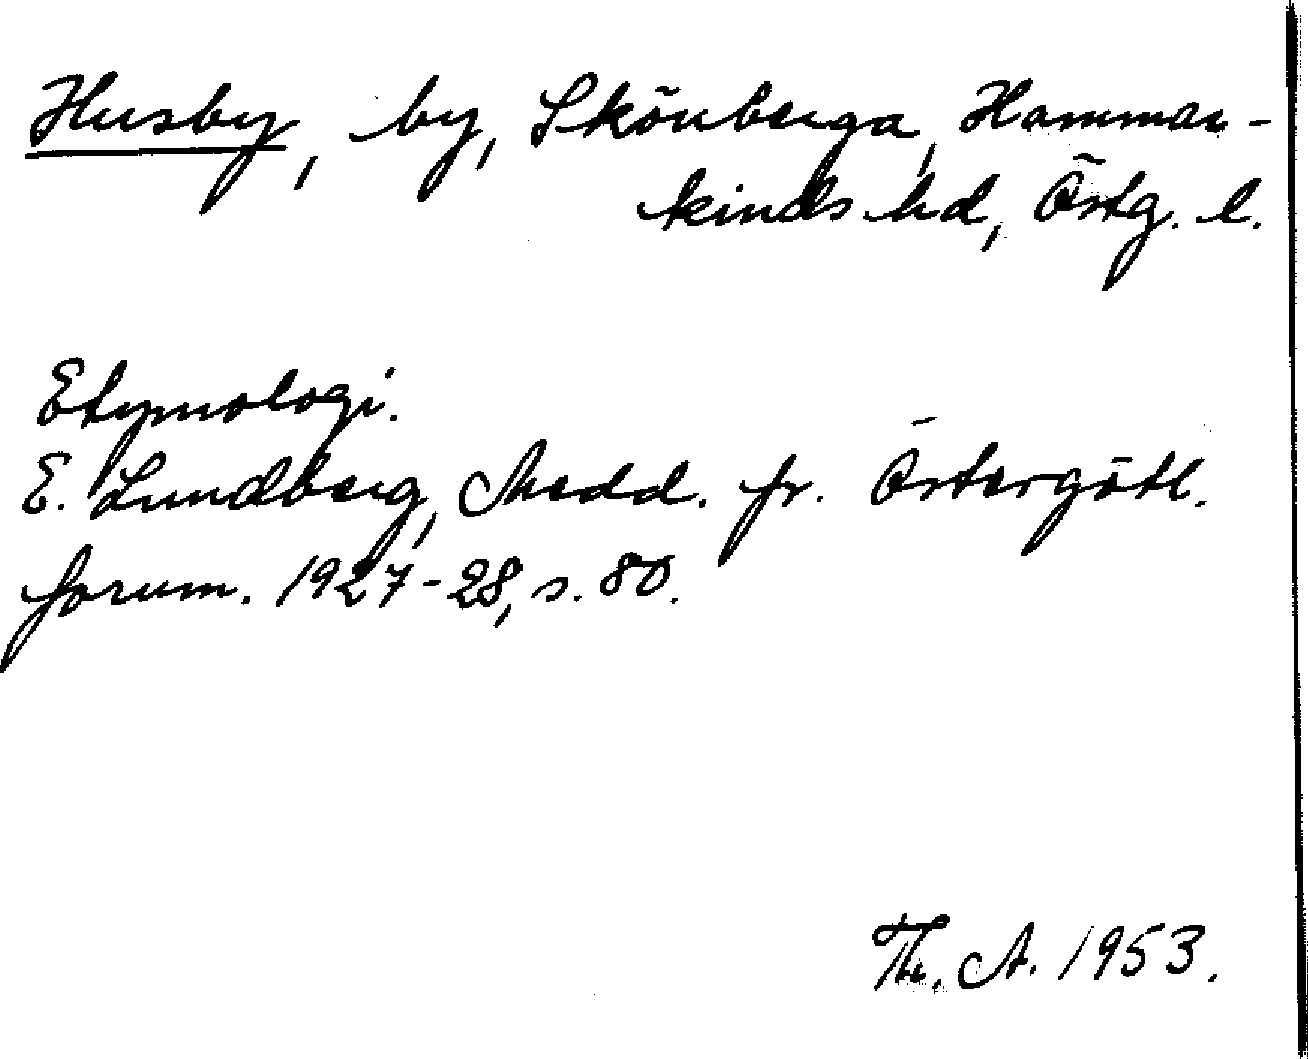 Husby, by, Skönberga, Hammar-
kinds hd, Östg. l.
Etymologi.
E. Lundberg, Medd. fr. Östergötl.
fornm. 1927-28, s. 80.
Th. A. 1953.